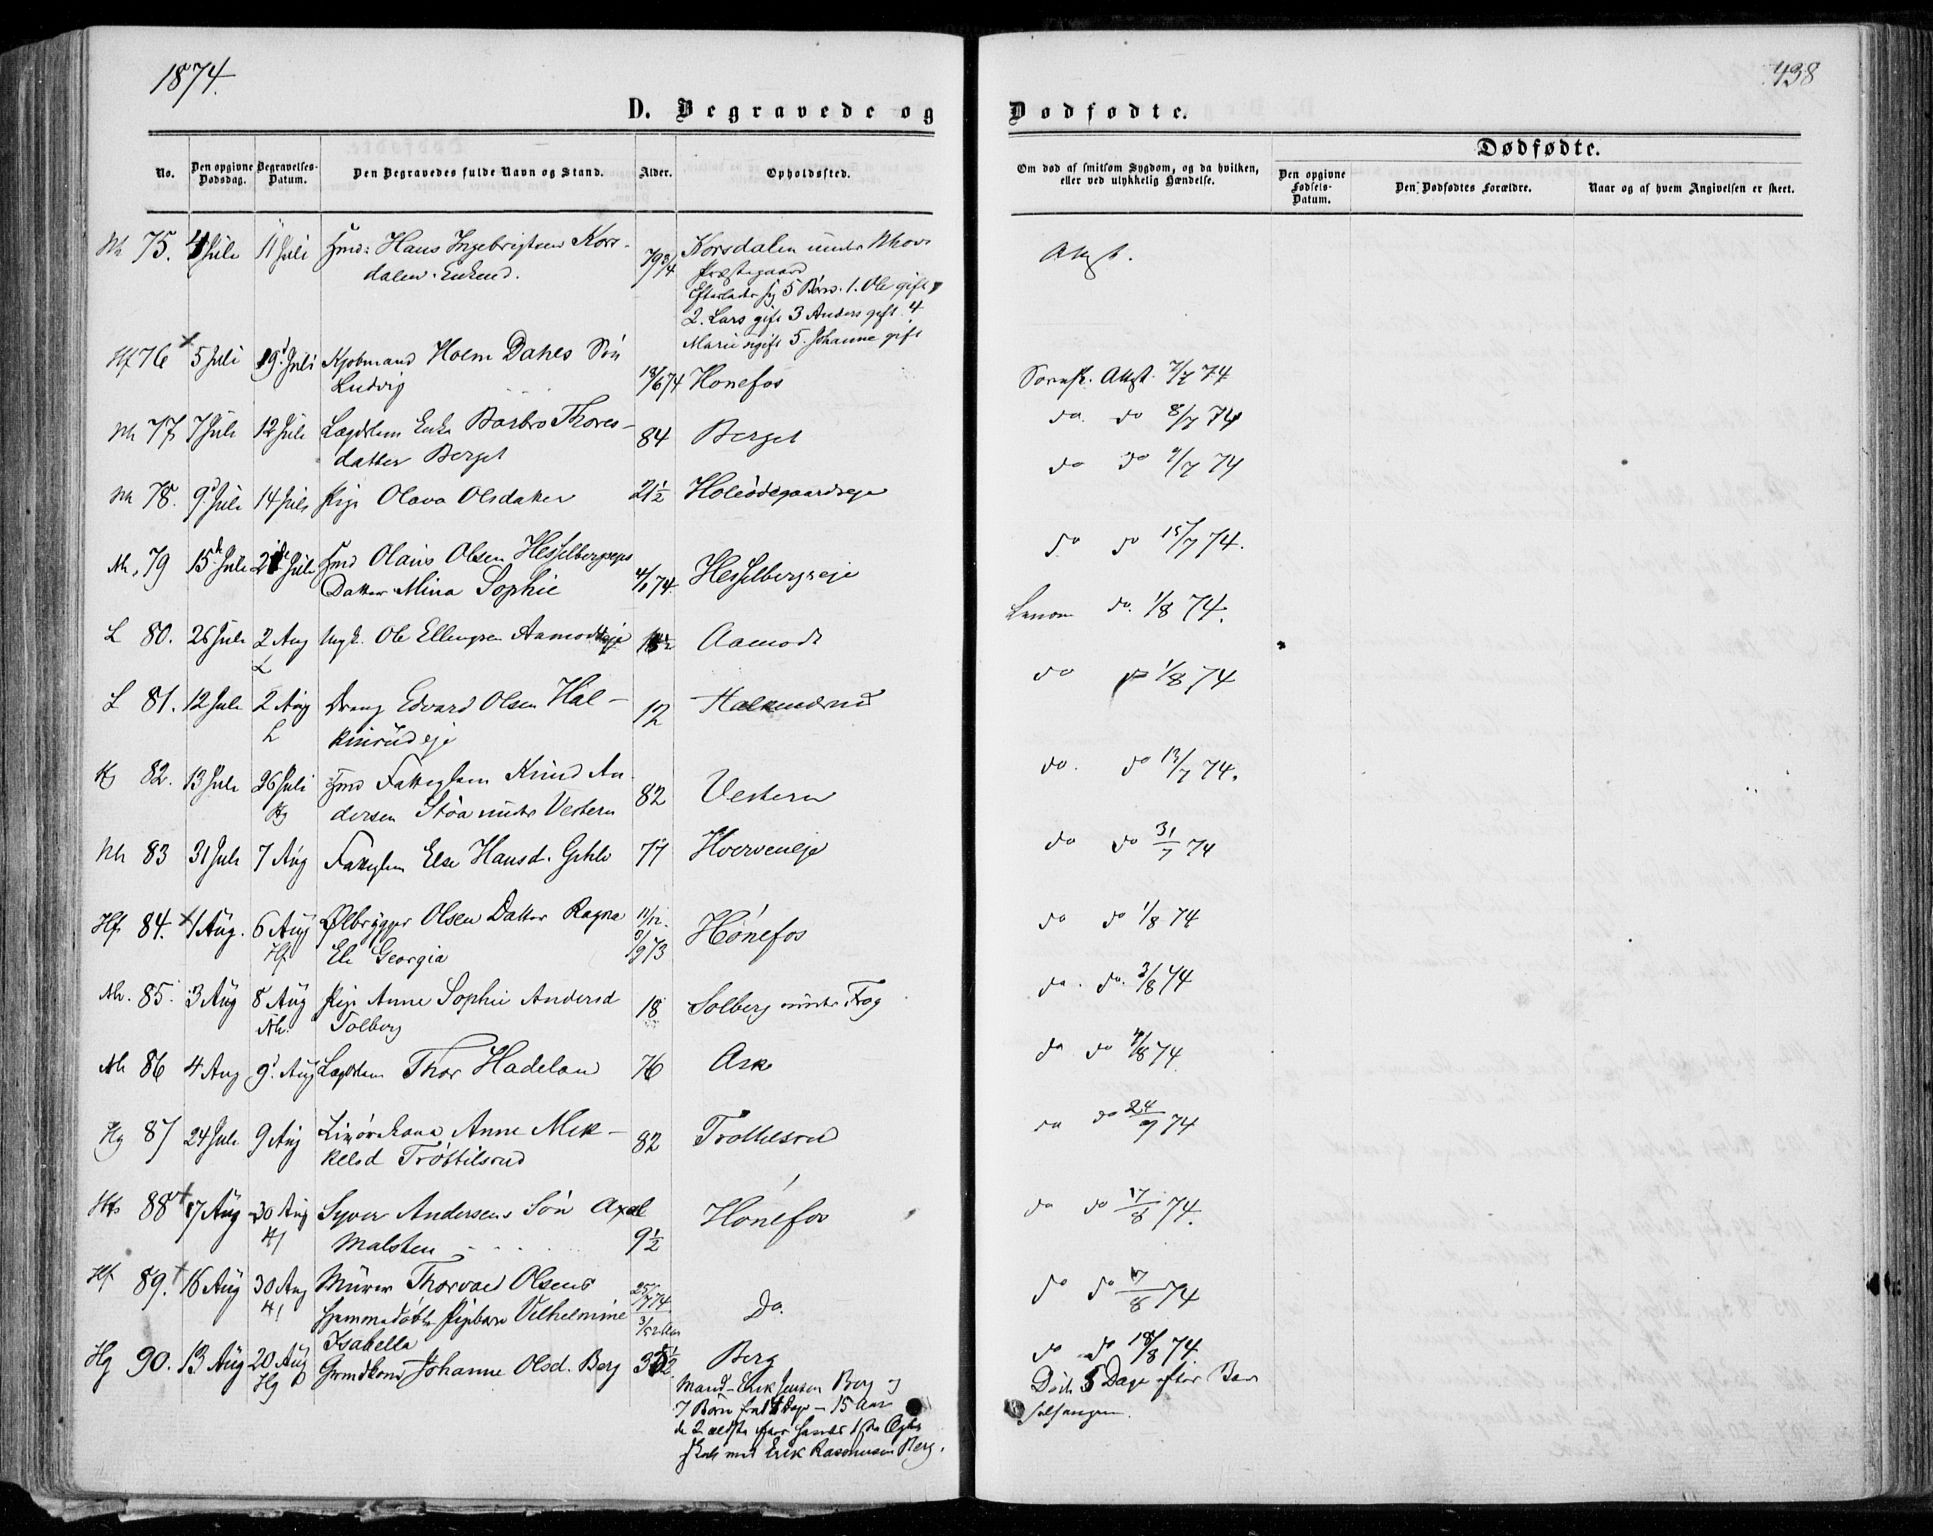 1874.
438
D. Begravede og
Dødfødte.
No.
Den opgivne Dødsdag.
Begravelses-Datum.
Den Begravedes fulde Navn og Stand.
Alder.
Opholdssted.
Om død af smitsom Sygdom, og da hvilken,
eller ved ulykkelig Hændelse.
Dødfødte.
Den opgivne Fødsels-Datum.
Den Dødfødtes Forældre.
Naar og af hvem Angivelsen er skeet.
Nh 75. 4 Juli 11 Juli Hans Ingebrigtsen Kors-
dalen. Enkemd. 79 3/4 Korsdalen under Nhovs
Præstegaard
Efterlader sig 5 Børn. 1. Ole gift,
2. Lars gift 3 Anders gift 4
Marie ugift 5. Johanne gift
Hf 76 5 Juli 19 Juli Kjøbmand Holm Dahls Søn
Ludvig 13/6 74 Hønefos Sornsk. Attst. 7/7 74
Nh 77 7 Juli 12 Juli Lægdslem Enke Barbro Thores-
datter Berget 84 Berget do do 8/7 74
Nh 78. 9 Juli 14 Juli Pige Olava Olsdatter 21 1/2 Holeødegaardseje do do 9/7 74
Nh. 79 15de Juli 21de Juli Hmd Olaus Olsen Hesselbergsejes
Datter Mina Sophie 74 Hesselbergseje do do 15/7 74.
L 80. 26 Juli 2 Aug Ungk. Ole Ellingsen Aamodteje Aamodt Lensm do. 1/8 74.
L
L 81. 12 Juli 2 Aug Dreng Edvard Olsen Hal-
L kinrudeje 12 do do 1/8 74
Hg 82. 13 Juli 26 Juli Hmd Fattiglem Knud An-
Hg dersen Støa under Vestern 82 Vestern do. do 13/7 74.
Nh 83 31 Juli 7 Aug Fattiglem Else Hansd. 77 Hverveneje do do 31/7 74
Hf 84. 1 Aug. 6 Aug Ølbrygger Olsen Datter Ragna
Hf Georgia 73 Hønefos do do 1/8 74
Nh. 85. 3 Aug 8 Aug Pige Anne Sophie Andersd
Nh. Solberg 18 Solberg under Fog do. do. 3/8 74
Nh 86 4 Aug 9 Aug Lægdslem Thor Hadelan 76 Ask do do 4/8 74.
Hg 87 24 Juli 9 Aug Anne Mik-
kelsd Trøttilsrud 82 Trøttilsrud do do 24/ 74
88 7 Aug 30 Aug Syver Andersens Søn Axel
Malsten 9 1/2 Hønefos do do 17/8 74.
Hf 89. 16 Aug 30 Aug Murer Thorvald Olsens
hjemmedøbte Pigebarn Vilhelmine 25/7 74 Do. do do 17/8 74
Isabella
Hg 90. 13 Aug 20 Aug Grmdkone Johanne Olsd. Berg 35 1/2 Berg do do 18/8 74.
Hg
Mand- Erik Jensen Berg
7 Børn Dage - 15 Aar
de 2 ældste efter
Skab med Erik Rasmusen Berg.
Død 5 Dage efter Bar
selsengen.